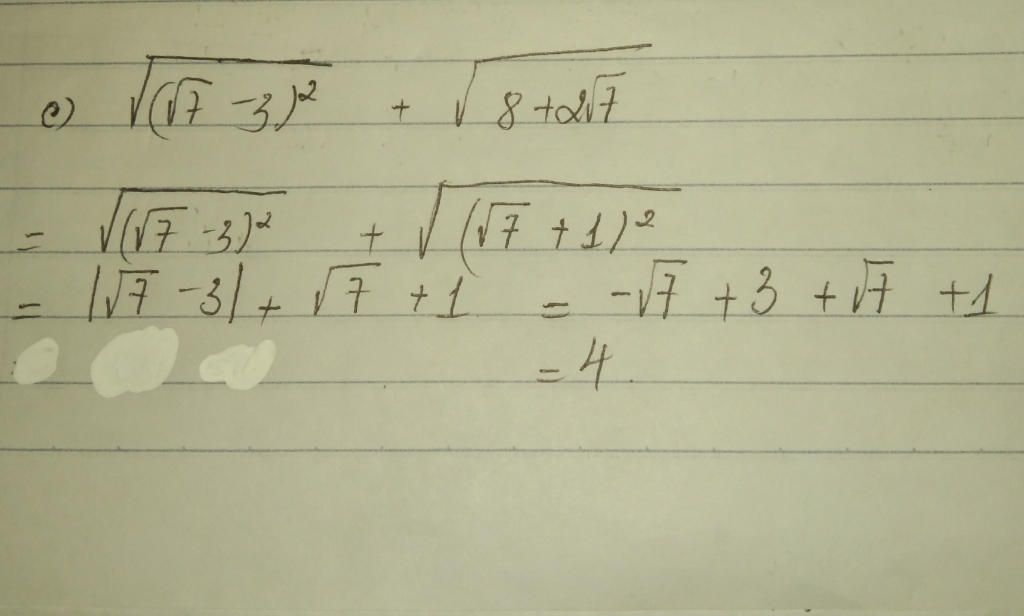 c) √((√7 - 3)²) + √(8 + 2√7)
= √((√7 - 3)²) + √((√7 + 1)²)
= |√7 - 3| + √7 + 1 = -√7 + 3 + √7 + 1
= 4.